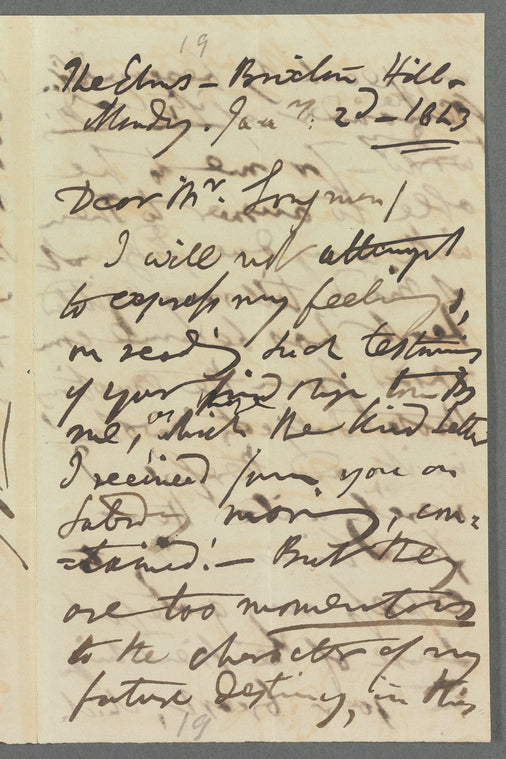 19
The Elms – Brixton Hill –
Monday. Jany. 2d – 1843
Dear Mr. Longman/
I will not attempt
to express my feelings,
on reading such testimonies
of your kind to
me, or which the kind letter
I received from you on
Saturday morning, con=
=tained! – But they
are too momentous
to the character of my
future destiny, in this
19